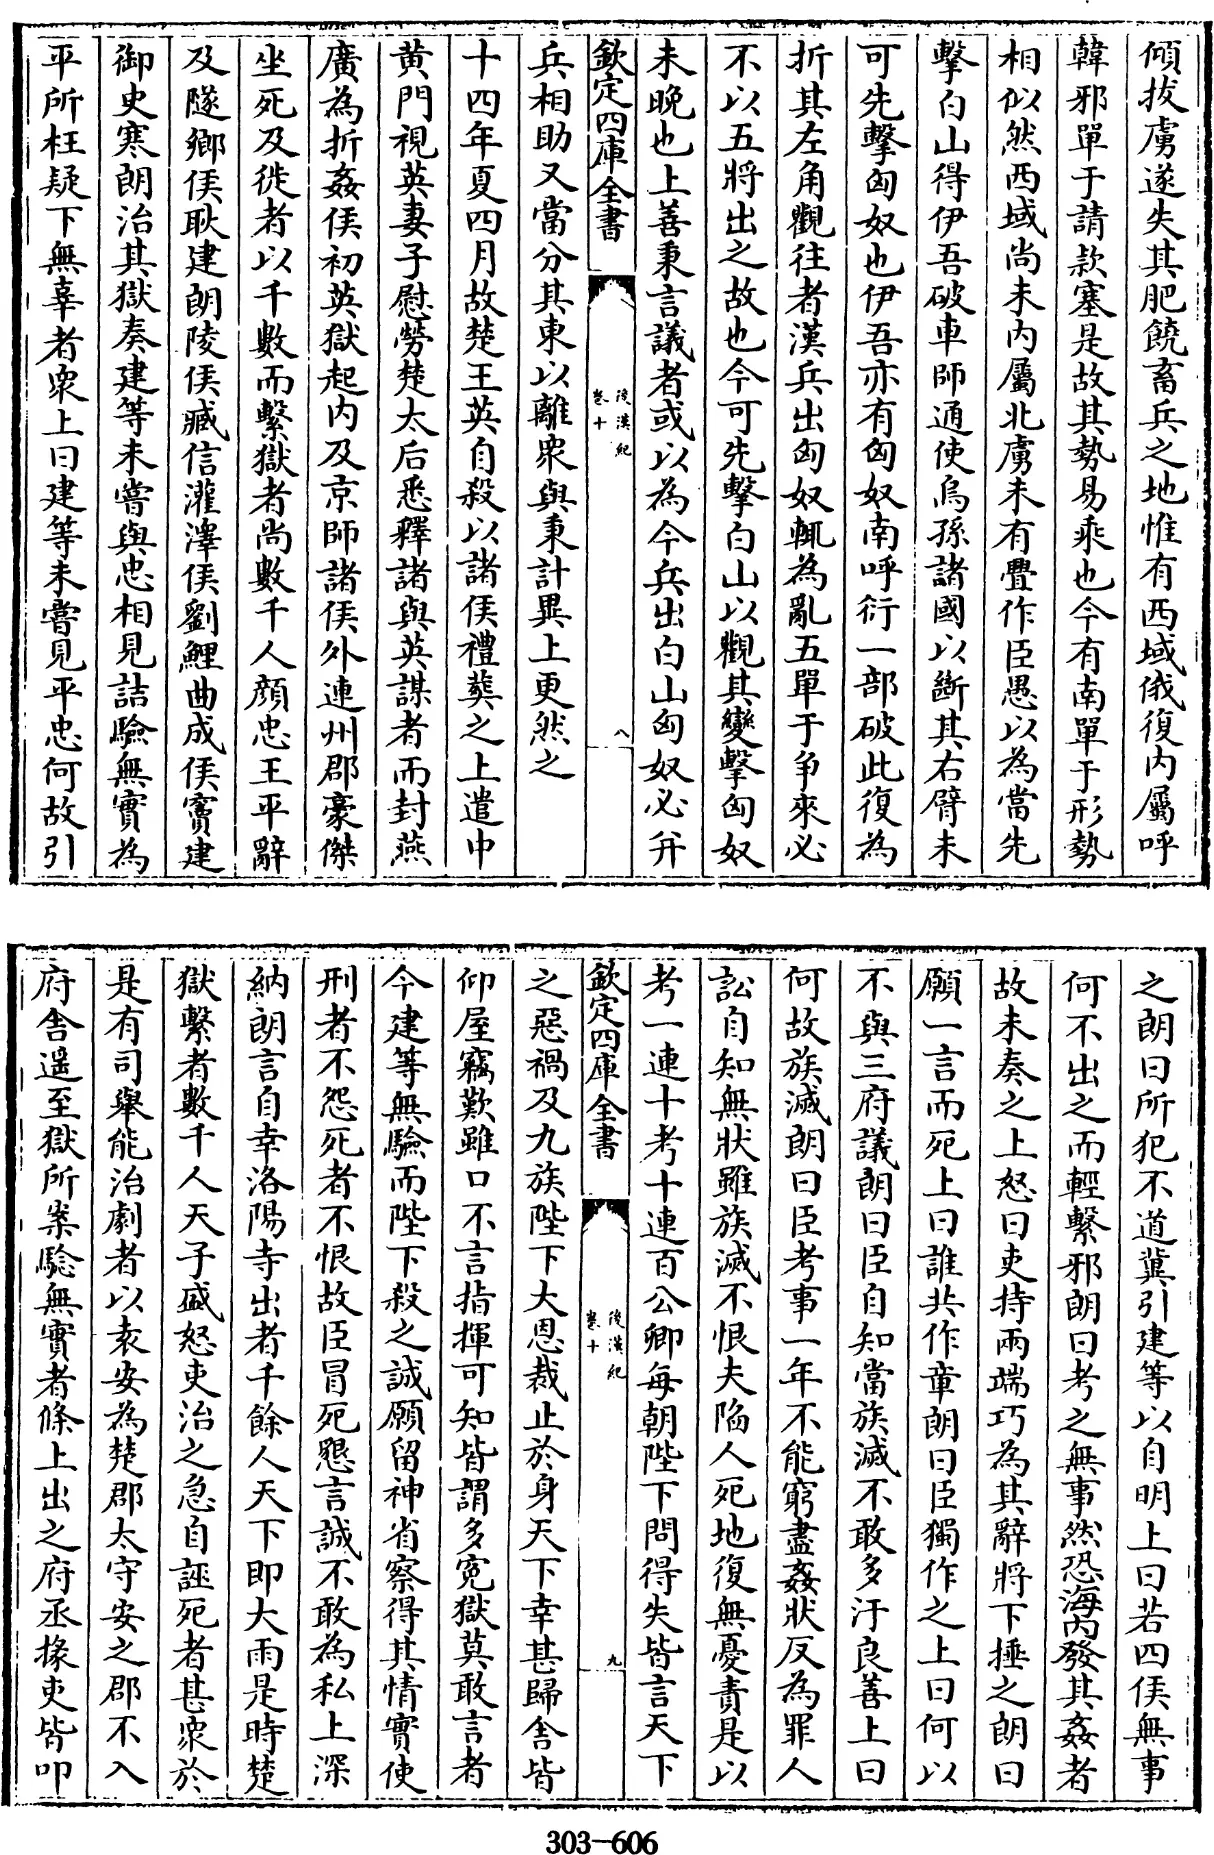 傾拔虜遂失其肥饒畜兵之地惟有西域俄復内屬呼
韓邪單于請款塞是故其勢易乘也今有南單于形勢
相似然西域尚未内屬北虜未有釁作臣愚以為當先
擊白山得伊吾破車師通使烏孫諸國以斷其右臂未
可先擊匈奴也伊吾亦有匈奴南呼衍一部破此復為
折其左角觀往者漢兵出匈奴輒為亂五單于争來必
不以五將出之故也今可先擊白山以觀其變擊匈奴
未晚也上善秉言議者或以為今兵出白山匈奴必并
欽定四庫全書
後漢紀
卷十
八
兵相助又當分其東以離衆與秉計異上更然之
十四年夏四月故楚王英自殺以諸侯禮葬之上遣中
黄門視英妻子慰勞楚太后悉釋諸與英謀者而封燕
廣為折姦侯初英獄起内及京師諸侯外連州郡豪傑
坐死及徙者以千數而繫獄者尚數千人顔忠王平辭
及隧鄉侯耿建朗陵侯臧信灌澤侯劉鯉曲成侯竇建
御史寒朗治其獄奏建等未嘗與忠相見詰驗無實為
平所枉疑下無辜者衆上曰建等未嘗見平忠何故引
之朗曰所犯不道冀引建等以自明上曰若四侯無事
何不出之而輕繫邪朗曰考之無事然恐海内發其姦者
故未奏之上怒曰吏持兩端巧為其辭將下捶之朗曰
願一言而死上曰誰共作章朗曰臣獨作之上曰何以
不與三府議朗曰臣自知當族滅不敢多汙良善上曰
何故族滅朗曰臣考事一年不能窮盡姦狀反為罪人
訟自知無狀雖族滅不恨夫陷人死地復無憂責是以
考一連十考十連百公卿每朝陛下問得失皆言天下
欽定四庫全書
後漢紀
卷十
九
之惡禍及九族陛下大恩裁止於身天下幸甚歸舍皆
仰屋竊歎雖口不言指揮可知皆謂多冤獄莫敢言者
今建等無驗而陛下殺之誠願留神省察得其情實使
刑者不怨死者不恨故臣冒死懇言誠不敢為私上深
納朗言自幸洛陽寺出者千餘人天下即大雨是時楚
獄繫者數千人天子盛怒吏治之急自誣死者甚衆於
是有司舉能治劇者以袁安為楚郡太守安之郡不入
府舍遥至獄所案驗無實者條上出之府丞掾吏皆叩
303-606